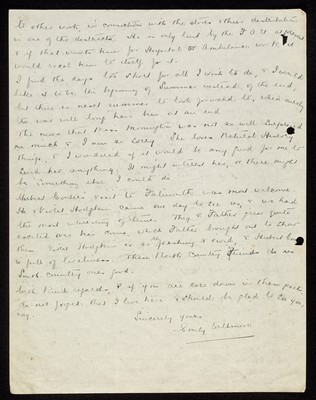 to other work, in connection with the stores & their distribution
in one of the districts. He is only lent by the F.A.U. at present
& if that wants him for Hospital or Ambulance work, it
would recall him to itself for it.
I find the days too short for all I wish to do, & I would
like it to be the beginning of Summer instead of the end,
but there is next summer to look forward to, when surely
the war will long have been at an end.
The news that Miss Monington was not so well surprised
me much & I am so sorry. She loves Natural History
things, & I wondered if it would be any good for me to
send her anything. It might interest her, or there might
be something else I could do.
Hubert Corder's visit to Falmouth was most welcome
He & Violet Hodgkin came one day to see us, & we had
the most interesting of times. They & Father grew quite
excited over his coins, which Father brought out to show
them. Violet Hodgkin is so glashing & vivid, & Hubert
is full of liveliness. These North Country Friends do us
South country ones good.
With kind regards, & if you are ever down in these parts
do not forget that I live here & should be glad to see you,
Sincerely yours
Emily